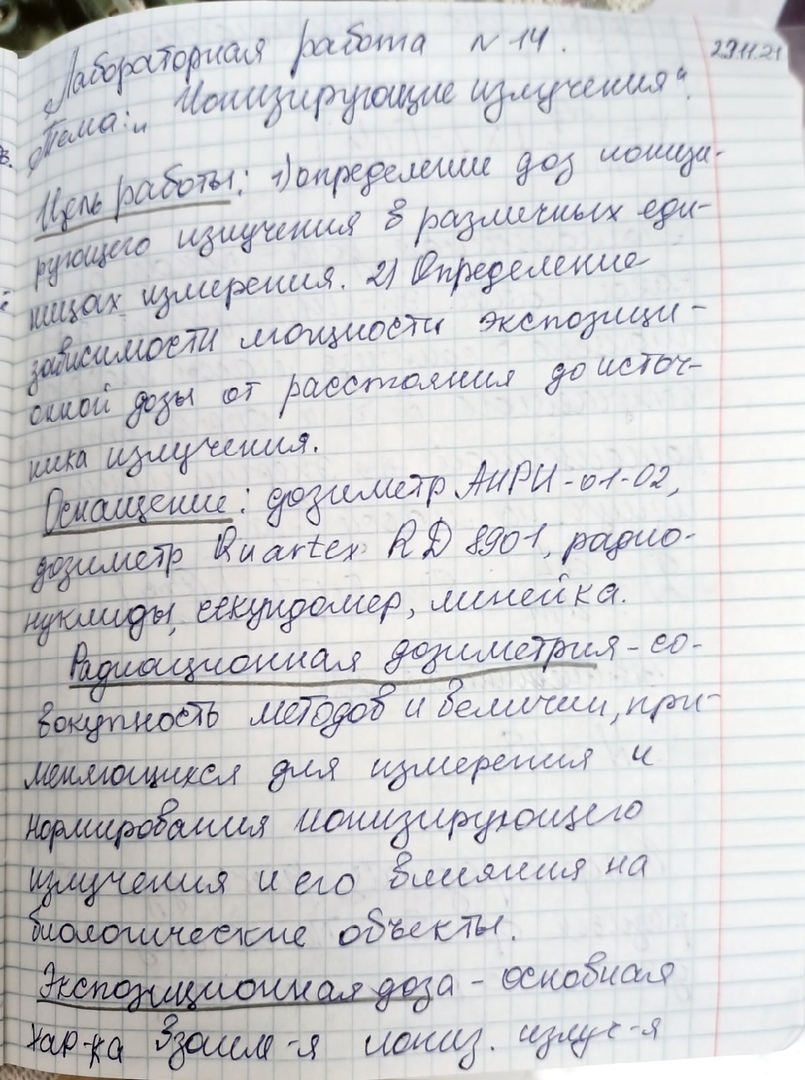 Лабораторная работа N 14. 29.11.21
Тема: „Ионизирующие излучения“.
Цель работы: 1) определение доз ионизи-
рующего излучения в различных еди-
ницах измерения. 2) Определение
зависимости мощности экспозици-
онной дозы от расстояния до источ-
ника излучения.
Оснащение: дозиметр АНРИ-01-02,
дозиметр Quartex RD 8901, радио-
нуклиды, секундомер, линейка.
Радиационная дозиметрия - со-
вокупность методов и величин, при-
меняющихся для измерения и
нормирования ионизирующего
излучения и его влияния на
биологические объекты.
Экспозиционная доза - основная
хар-ка взаим-я иониз. излуч-я